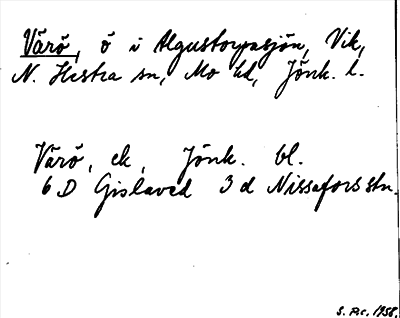 Värö, ö i Algustorpasjön, Vik,
N. Hestra sn, Mo hd, Jönk. l.
Värö, ek, Jönk. bl.
6 D Gislaved 3 d Nissafors stn.
1958.